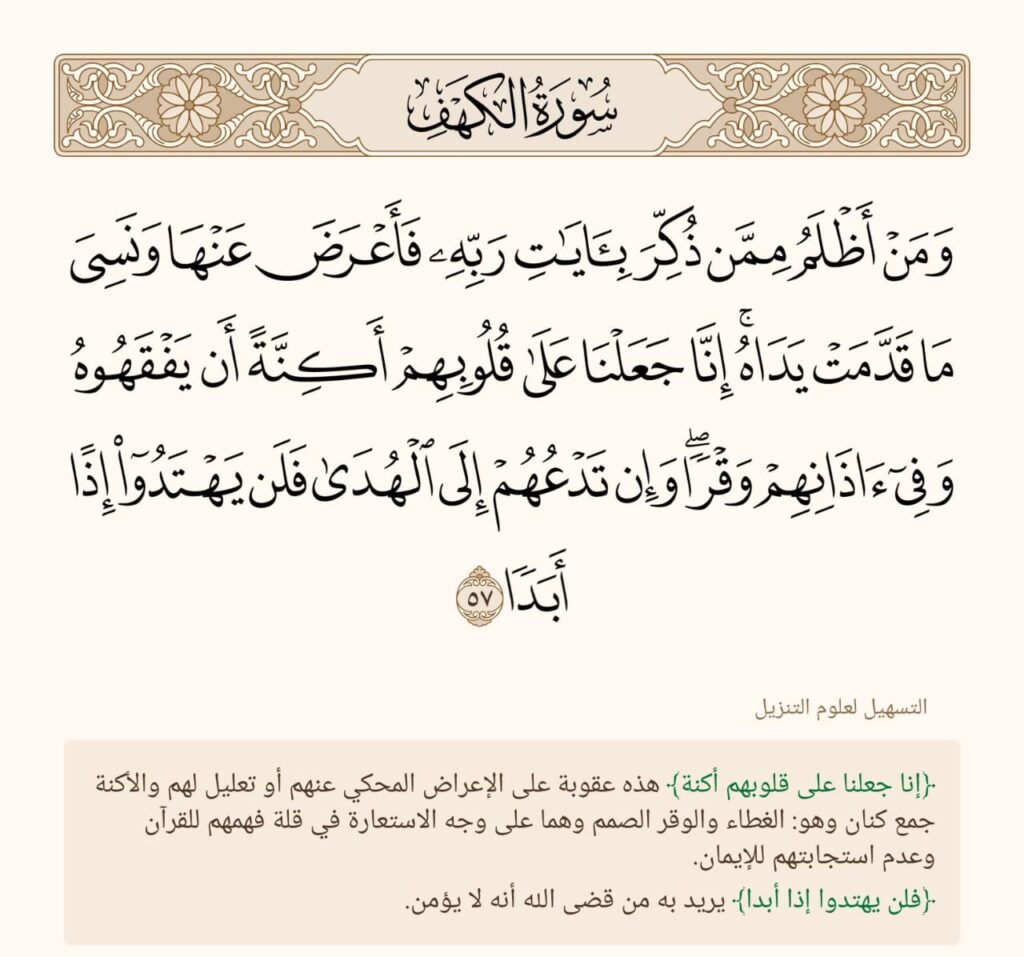 سُورَةُ الكَهْفِ
وَمَنْ أَظْلَمُ مِمَّن ذُكِّرَ بِـَٔايَـٰتِ رَبِّهِۦ فَأَعْرَضَ عَنْهَا وَنَسِىَ
مَا قَدَّمَتْ يَدَاهُ ۚ إِنَّا جَعَلْنَا عَلَىٰ قُلُوبِهِمْ أَكِنَّةً أَن يَفْقَهُوهُ
وَفِىٓ ءَاذَانِهِمْ وَقْرًا ۖ وَإِن تَدْعُهُمْ إِلَى ٱلْهُدَىٰ فَلَن يَهْتَدُوٓا۟ إِذًا
أَبَدًا ٥٧
التسهيل لعلوم التنزيل
﴿إنا جعلنا على قلوبهم أكنة﴾ هذه عقوبة على الإعراض المحكي عنهم أو تعليل لهم والأكنة
جمع كنان وهو: الغطاء والوقر الصمم وهما على وجه الاستعارة في قلة فهمهم للقرآن
وعدم استجابتهم للإيمان.
﴿فلن يهتدوا إذا أبدا﴾ يريد به من قضى الله أنه لا يؤمن.